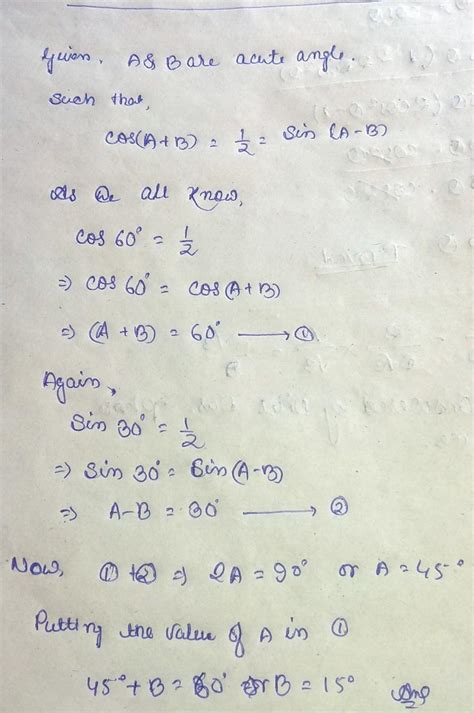 Given, A & B are acute angle.
Such that,
cos(A+B) = 1/2 = Sin (A-B)
As We all Know,
cos 60° = 1/2
=> cos 60° = cos(A+B)
=> (A + B) = 60° ⟶ ①
Again,
Sin 30° = 1/2
=> Sin 30° = Sin(A-B)
=> A-B = 30° ⟶ ②
Now, ① + ② => 2A = 90° or A = 45°
Putting the value of A in ①
45° + B = 60° or B = 15° Ans